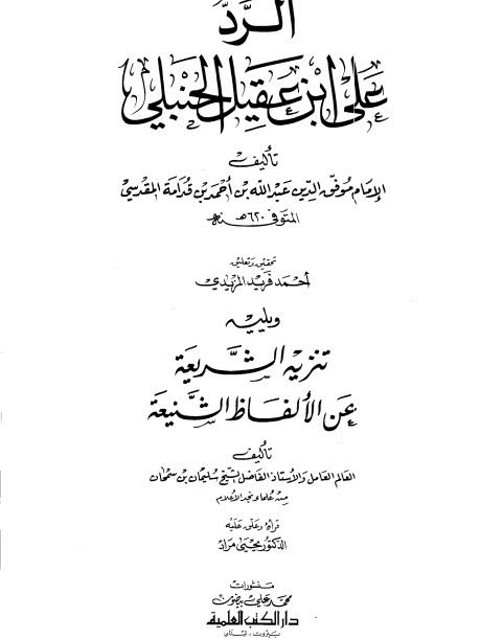 الرَّدُّ
عَلَى ابْنِ عَقِيلِ الحَنْبَلِي
تأليف
الإمَام مُوَفَّق الدِّين عَبْد اللّه بْن أحْمَد بْن قُدَامَة المقْدِسِيّ
المتوفى سنة ٦٢٠ هـ
تحقيق وتعليق
أحمَد فَريْد المزيْدي
ويليه
تنزيه الشَّريعَة
عَن الألفَاظ الشَّنيعَة
تأليف
العالم العَامل وَالأستاذ الفَاضل الشَّيْخ سُليمَان بن سَحمَان
مِنْ علمَاء نجد الأعلام
قرأهُ وَعَلّق عَلَيْه
الدكتور يحيَى مرَاد
منشورات
محمد علي بيضون
دار الكتب العلمية
بيروت - لبنان